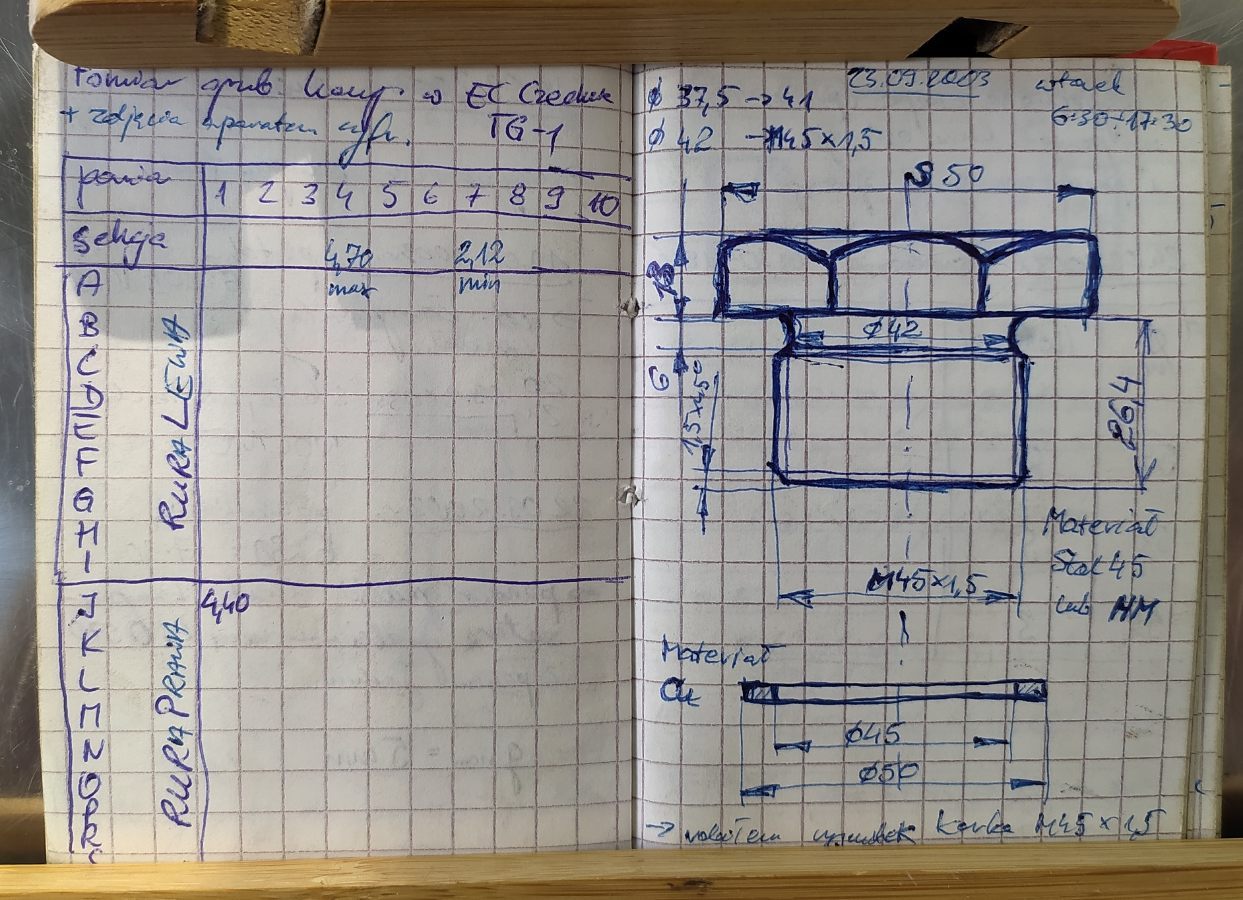 Pomiar grub. komp. EC Czechnica
+ zdjęcia aparatem cyfr. TG-1
pomiar 1 2 3 4 5 6 7 8 9 10
Sekcja
4,70 2,12
max min
A
B
C
D
E
F
G
H
I
RURA LEWA
J 4,40
K
L
M
N
O
P
R
RURA PRAWA
23.09.2003 wtorek
6:30÷17:30
ø 37,5 → 41
ø 42 → M45×1,5
S 50
13
ø42
6
1,5×45°
26,4
M45×1,5
Materiał
Stal 45
lub NM
Materiał
Cu
ø45
ø50
→ M45×1,5